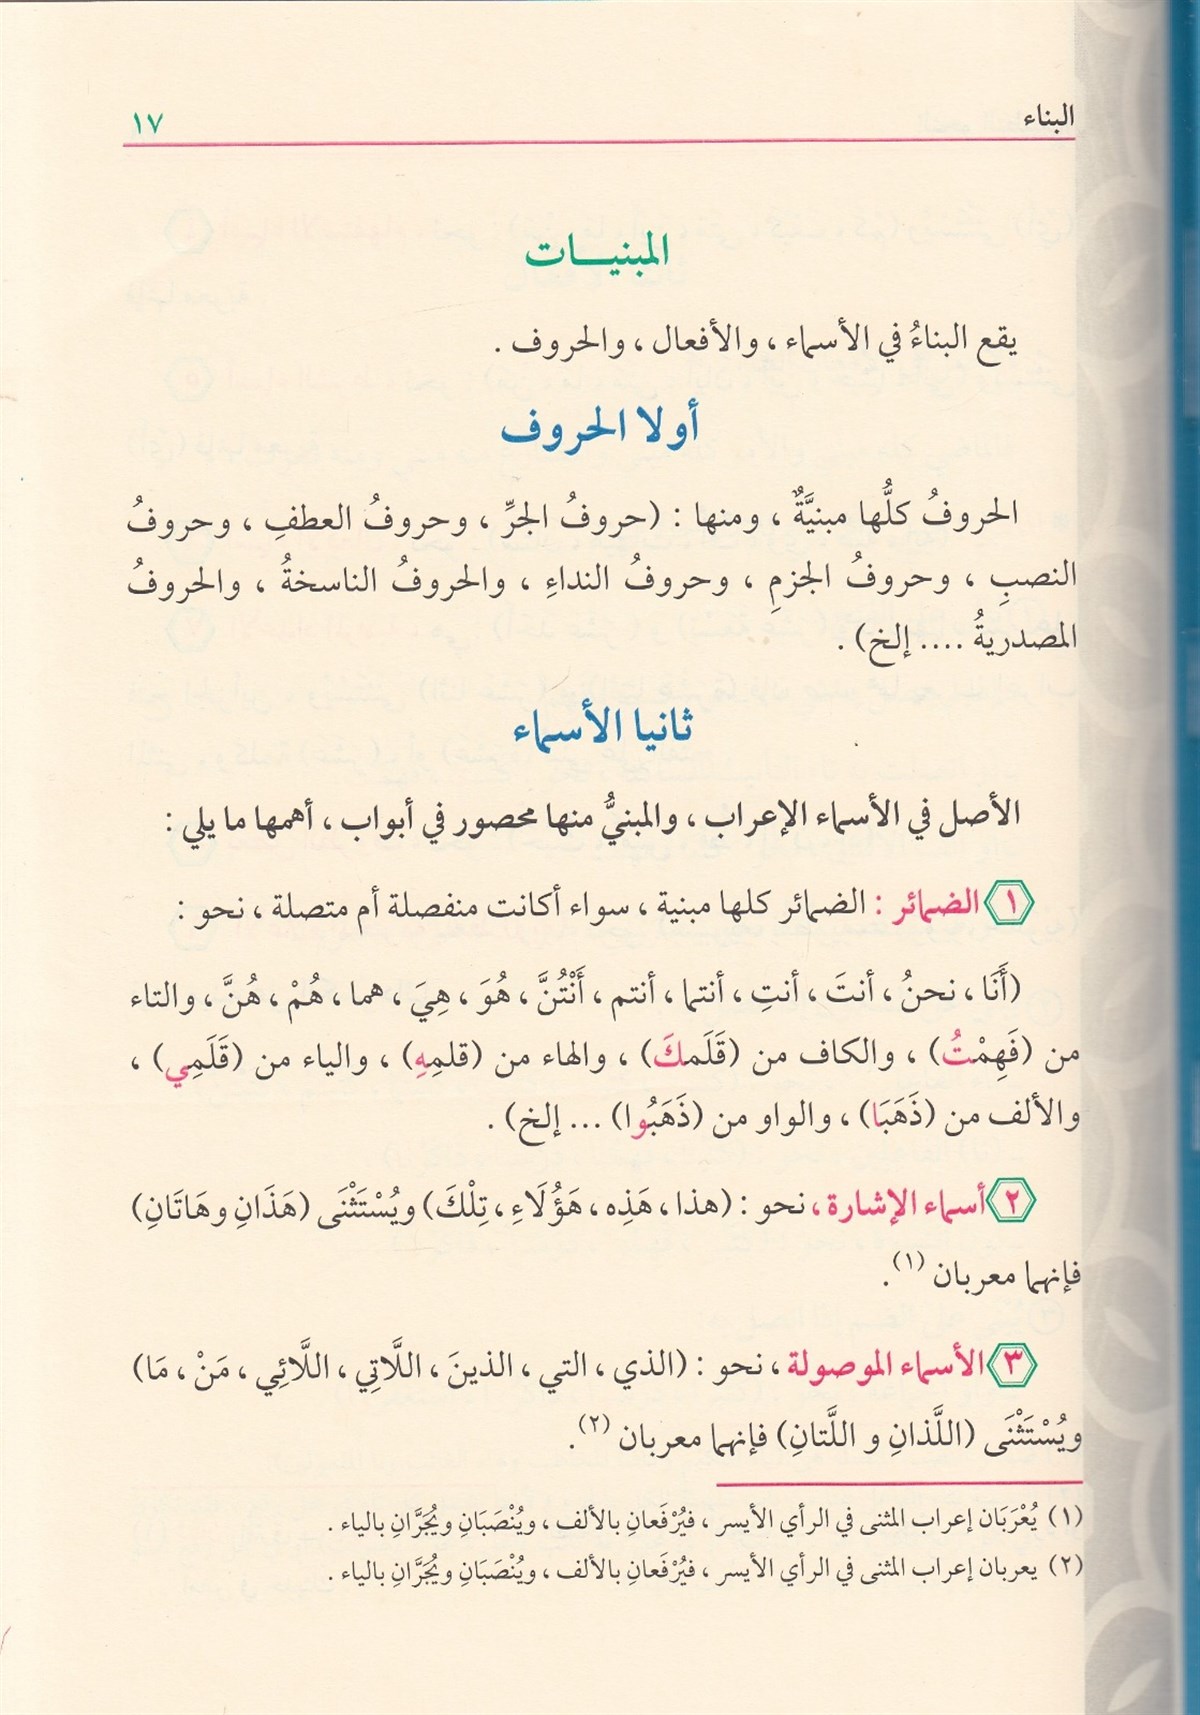 البناء ١٧
المبنيـــات
يقع البناءُ في الأسماء ، والأفعال ، والحروف .
أولا الحروف
الحروفُ كلُّها مبنيَّةٌ ، ومنها : (حروفُ الجرِّ ، وحروفُ العطفِ ، وحروفُ
النصبِ ، وحروفُ الجزمِ ، وحروفُ النداءِ ، والحروفُ الناسخةُ ، والحروفُ
المصدريةُ .... إلخ) .
ثانيا الأسماء
الأصل في الأسماء الإعراب ، والمبنيُّ منها محصور في أبواب ، أهمها ما يلي :
١ الضمائر : الضمائر كلها مبنية ، سواء أكانت منفصلة أم متصلة ، نحو :
(أَنَا ، نحنُ ، أنتَ ، أنتِ ، أنتما ، أنتم ، أَنْتُنَّ ، هُوَ ، هِيَ ، هما ، هُمْ ، هُنَّ ، والتاء
من (فَهِمْتُ) ، والكاف من (قَلَمكَ) ، والهاء من (قلمِهِ) ، والياء من (قَلَمِي) ،
والألف من (ذَهَبَا) ، والواو من (ذَهَبُوا) ... إلخ) .
٢ أسماء الإشارة ، نحو : (هذا ، هَذِه ، هَؤُلَاءِ ، تِلْكَ) ويُسْتَثْنَى (هَذَانِ وهَاتَانِ)
فإنهما معربان (١).
٣ الأسماء الموصولة ، نحو : (الذي ، التي ، الذينَ ، اللَّاتِي ، اللَّائِي ، مَنْ ، مَا)
ويُسْتَثْنَى (اللَّذانِ و اللَّتانِ) فإنهما معربان (٢).
(١) يُعْرَبَان إعراب المثنى في الرأي الأيسر ، فيُرْفَعانِ بالألف ، ويُنْصَبَانِ ويُجَرَّانِ بالياء .
(٢) يعربان إعراب المثنى في الرأي الأيسر ، فيُرْفَعانِ بالألف ، ويُنْصَبَانِ ويُجَرَّانِ بالياء .